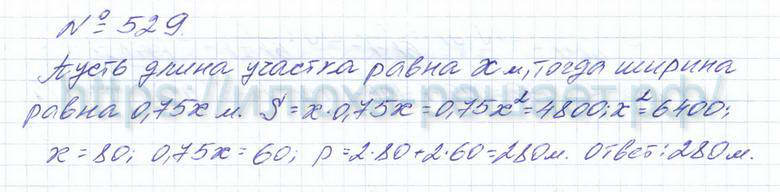 № 529.
Пусть длина участка равна x м, тогда ширина
равна 0,75x м. S = x·0,75x = 0,75x² = 4800; x² = 6400;
x = 80; 0,75x = 60; p = 2·80+2·60 = 280 м. Ответ: 280 м.